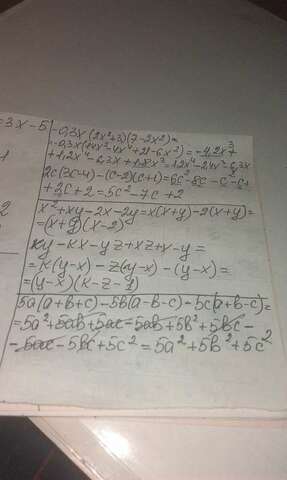 =3x-5
-0,3x(2x²+3)(7-2x²)=
=-0,3x(14x²-4x⁴+21-6x²)=-4,2x³+
+1,2x⁴-6,3x+1,8x³=1,2x⁴-2,4x³-6,3x
2c(3c-4)-(c-2)(c+1)=6c²-8c-c²-c+
+2c+2=5c²-7c+2
x²+xy-2x-2y=x(x+y)-2(x+y)=
=(x+y)(x-2)
ky-kx-yz+xz+x-y=
=k(y-x)-z(y-x)-(y-x)=
=(y-x)(k-z-1)
5a(a+b+c)-5b(a-b-c)-5c(a+b-c)=
=5a²+5ab+5ac-5ab+5b²+5bc-
-5ac-5bc+5c²=5a²+5b²+5c²
2